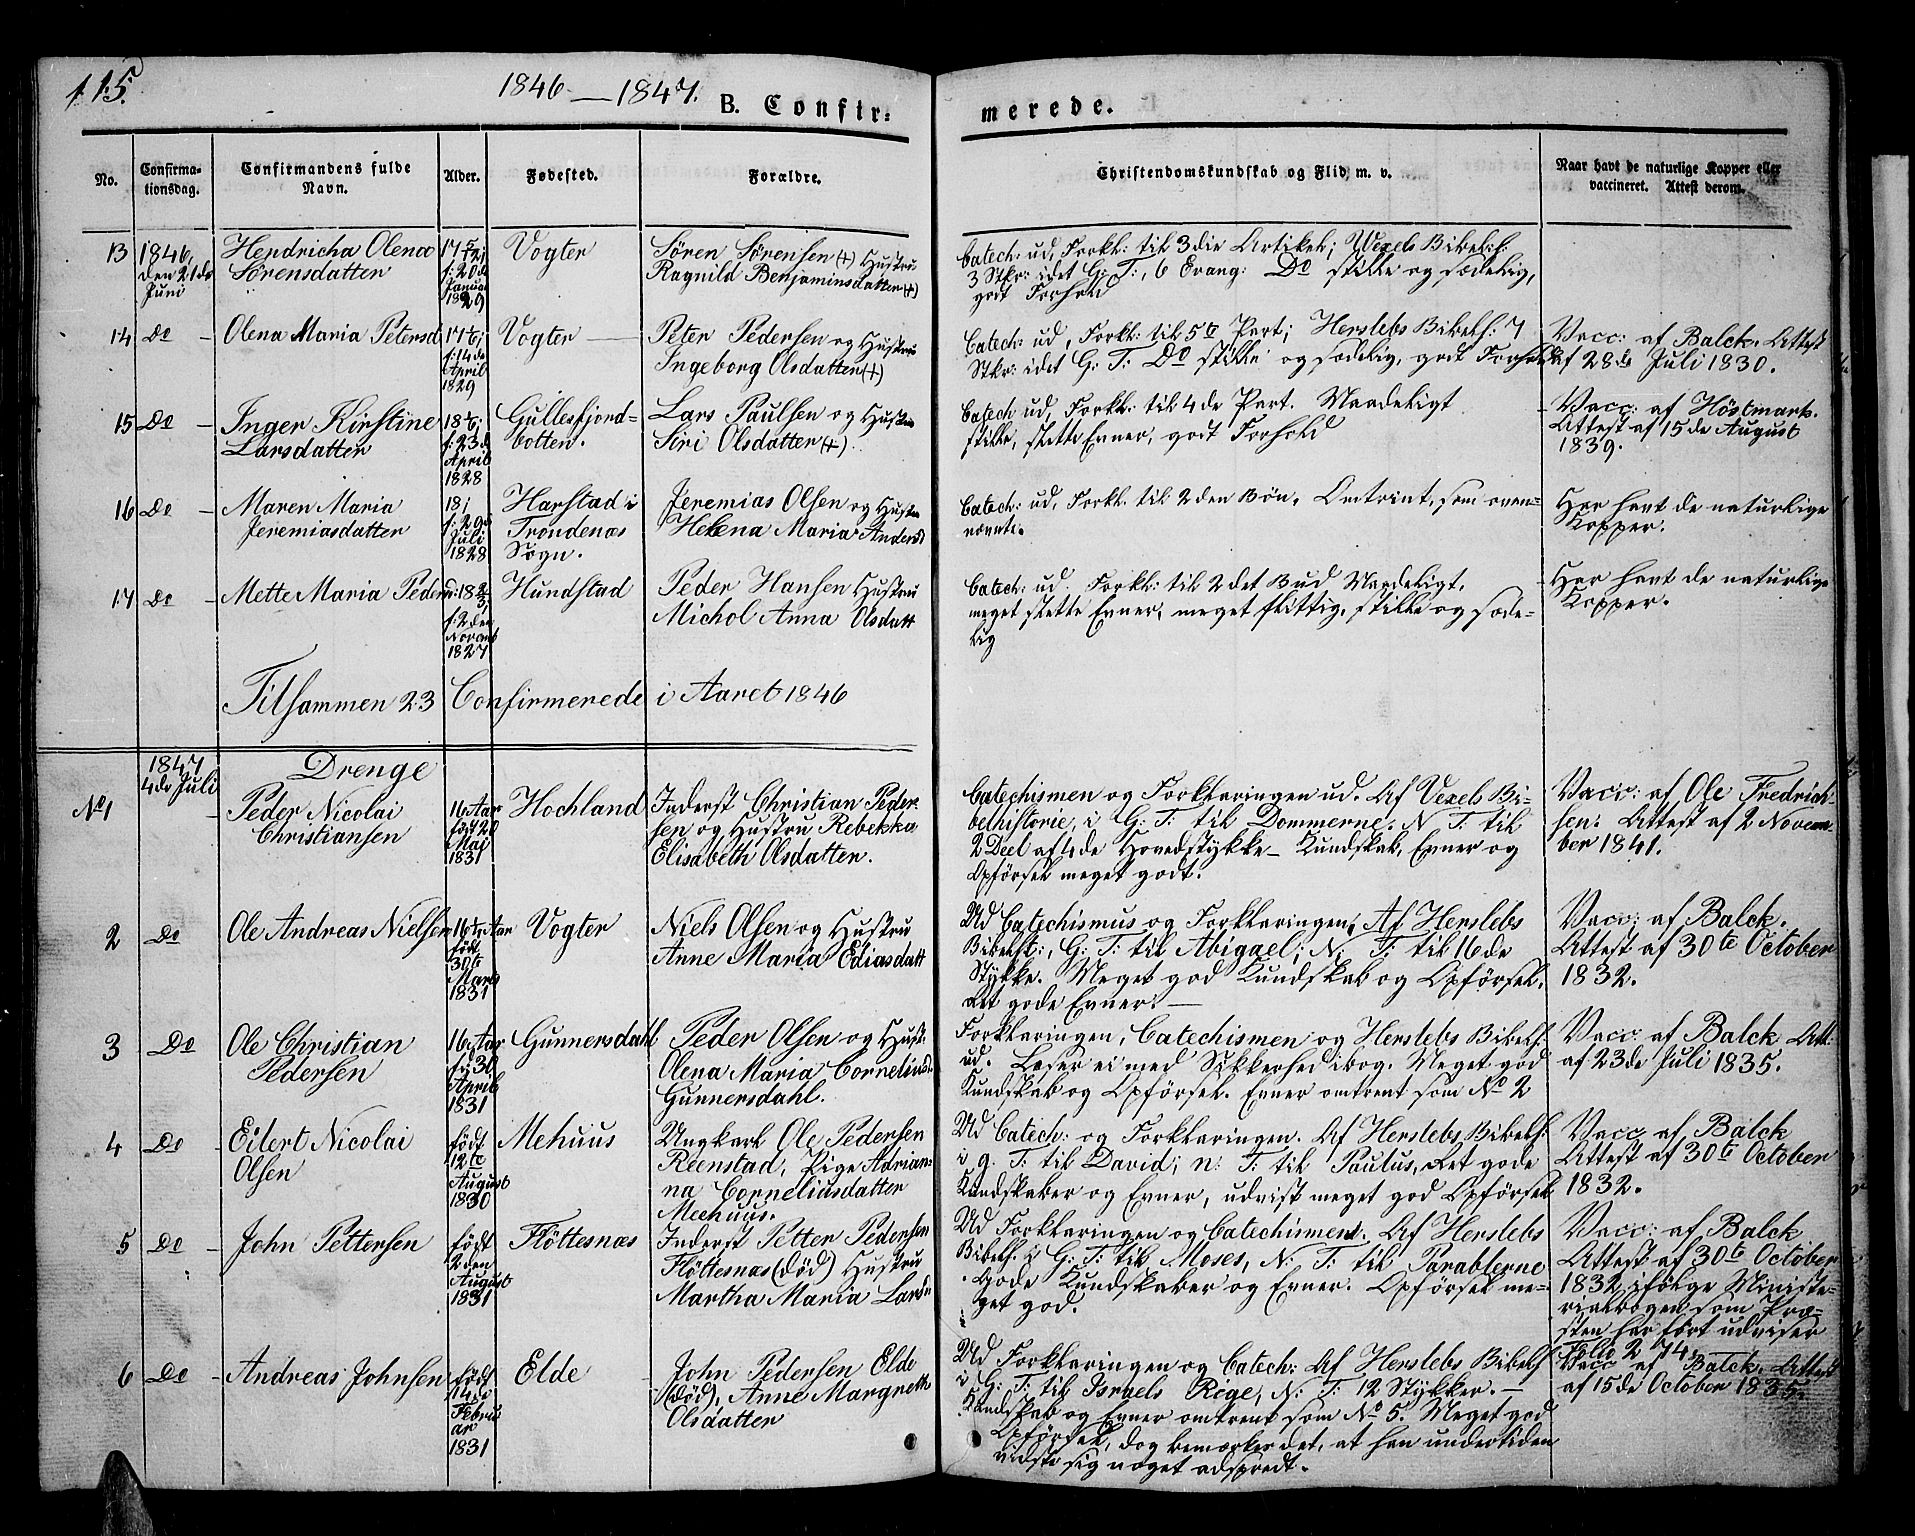 115.
1846 — 1847.
B. Confir=
merede.
No.
Confirma-
tionsdag.
Confirmandens fulde
Navn.
Alder.
Fødested.
Forældre.
Christendomskundskab og Flid, m. v.
Naar havt de naturlige Kopper eller
vaccineret. Attest derom.
13
1846,
den 21de
Juni
Hendricha Olena
Sørensdatter
17 5/12;
f: 20de
Januar
1829
Vogter
Søren Sørensen (+) Hustru
Ragnild Benjaminsdatter (+)
Catech: ud, Forkl: til 3die Artikel; Wexels Bibelh:
3 Stkr: i det G: T:, 6 Evang: Do stille og sædelig,
godt Forhold
14
Do
Olena Maria Petersd
17 1/6;
f: 14de
April
1829
Vogter
Peter Pedersen og Hustru
Ingeborg Olsdatter (+)
Catech: ud, Forkl: til 5te Part; Herslebs Bibelh: 7
Stkr: i det G: T: Do stille og sædelig, godt Forhold
Vacc: af Balck. Attest
af 28de Juli 1830.
15
Do
Inger Kirstine
Larsdatter
18 1/6;
f: 23de
April
1828
Gullesfjord=
botten.
Lars Paulsen og Hustru
Siri Olsdatter (+).
Catech ud, Forkl: til 4de Part. Maadeligt
stille, slette Evner, godt Forhold
Vacc: af Höstmark.
Attest af 15de August
1839.
16
Do
Maren Maria
Jeremiasdatter
18;
f: 29de
Juli
1828
Harstad i
Trondenæs
Sogn.
Jeremias Olsen og Hustru
Helena Maria Andersd
Catech: ud, Forkl: til 2den Bøn. Omtrint, som oven=
nævnte.
Har havt de naturlige
Kopper.
17
Do
Mette Maria Peders
f: 2den
Novemb
1827
Hundstad
Peder Hansen Hustru
Michol Anna Olsdatt
Catech: ud. Forkl: til 2det Bud Maadeligt,
meget slette Evner, meget flittig, stille og sæde=
lig
Har havt de naturlige
Kopper.
Tilsammen 23 Confirmerede i Aaret 1846
1847
4de Juli
Drenge
No 1
Peder Nicolai
Christiansen
16 Aar
født 20
Mai
1831
Hochland
Inderst Christian Peder-
sen og Hustru Rebekka
Elisabeth Olsdatter.
Catechismen og Forklaringen ud. Af Vexels Bi=
belhistorie, i G: T: til Dommerne. N T: til
2 Deel af 1de Hovedstykke— Kundskab, Evner og
Opførsel meget godt.
Vacc: af Ole Fredrich
sen. Attest af 2 Novem-
ber 1841.
2
Do
Ole Andreas Nielsen
16 1/4 Aar
født
30te
Marts
1831
Vogter
Niels Olsen og Hustru
Anne Maria Eliasdatt
Ud Catechismus og Forklaringen, Af Herslebs
Bibelh:, G: T: til Abigael; N: T: til 16de
Stykke. Meget god Kundskab og Opførsel.
Ret gode Evner. —
Vacc: af Balck.
Attest af 30te October
1832.
3
Do
Ole Christian
Pedersen
16 Aar
f: 30
April
1831
Gunnersdahl
Peder Olsen og Hust:
Olena Maria Corneliusd.
Gunnersdahl.
Forklaringen, Catechismen og Herslebs Bibelh:
ud. Læser ei med Sikkerhed i bog. Meget god
Kundskab og Opførsel. Evner omtrent som No 2
Vacc: af Balck Att:
af 23de Juli 1835.
4
Do
Eilert Nicolai
Olsen
født
12te
August
1830
Mehuus
Ungkarl Ole Pedersen
Reenstad, Pige Adrian=
na Corneliusdatter
Meehuus.
Ud Catech: og Forklaringen. Af Herslebs Bibelh:
i g. T: til David; n: T: til Paulus, Ret gode
Kundskaber og Evner, udvist meget god Opførsel
Vacc: af Balck
Attest af 30te October
1832.
5
Do
John Pettersen
født
2den
August
1831
Flöttesnæs
Inderst Petter Pedersen
Flöttesnæs (död) Hustru
Martha Maria Larsd
Ud Forklaringen og Catechismen. Af Herslebs
Bibelh. i G: T: til Moses, N: T: til Parablerne
Gode Kundskaber og Evner. Opførsel me=
get god.
Vacc: af Balck
Attest af 30te October
1832 ifølge Ministe-
rialbogen som Præ-
sten har ført udviser
Folio 274.
6
Do
Andreas Johnsen
født
14de
Febru
ar
1831
Elde
John Pedersen Elde
(död), Anne Margreth
Olsdatter
Ud Forklaringen og Catech: Af Herslebs Bibelh
i G: T: til Israels Rige, N: T: 12 Stykker. —
Kundskab og Evner omtrent som No 5. Meget god
Opførsel, dog bemærkes det, at han undertiden
viste sig noget adspredt.
Vacc af Balck. Attest
af 15de October 1835.